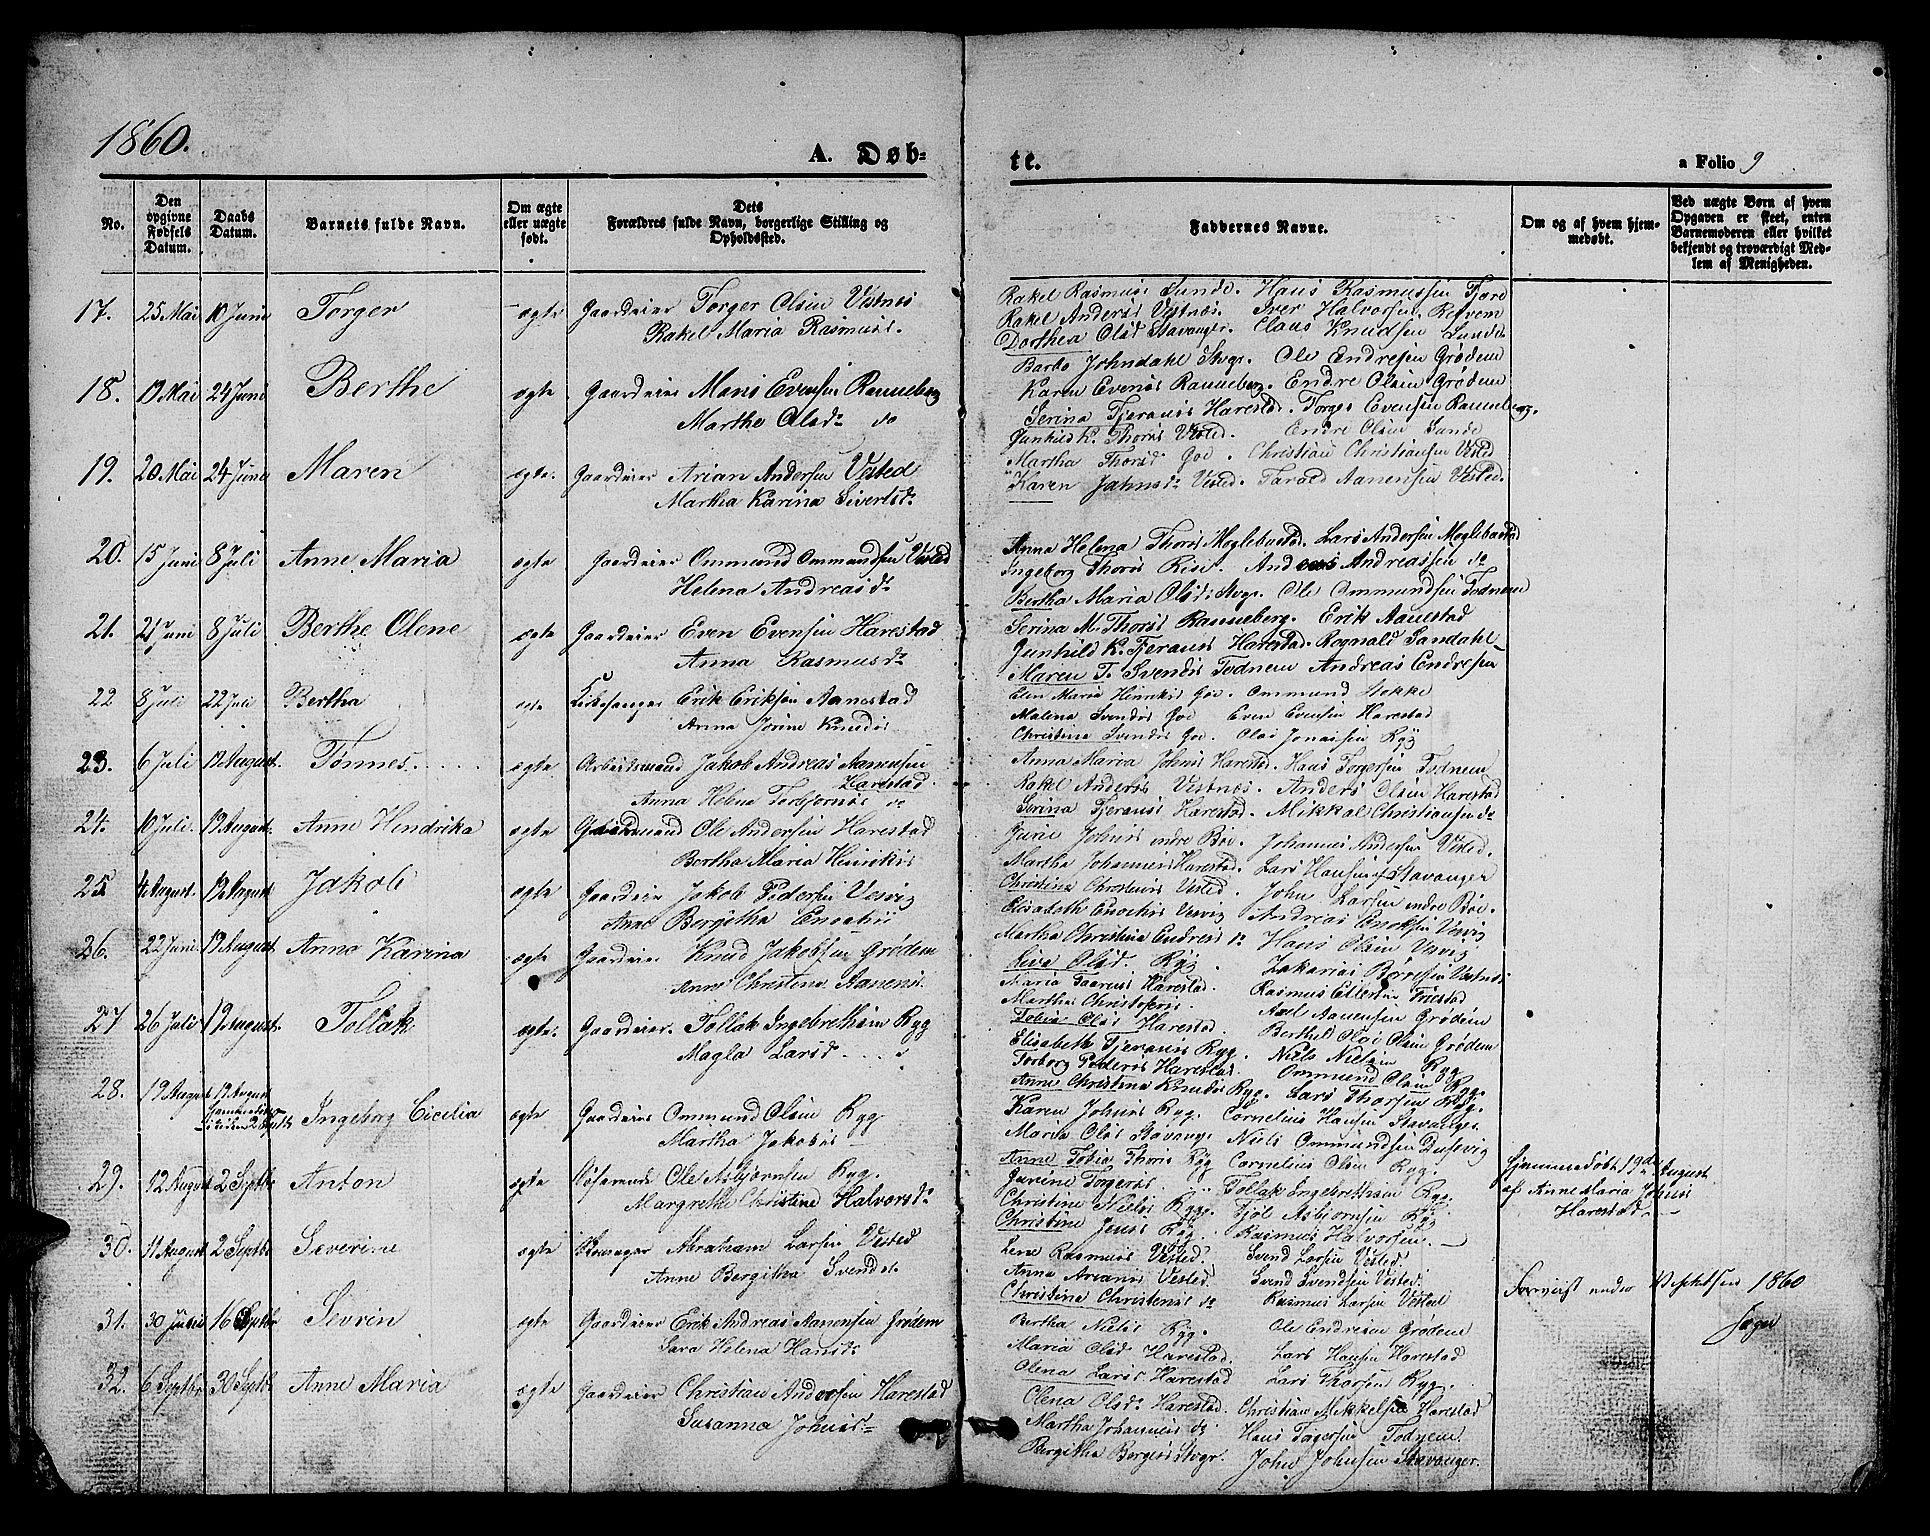 1860.
A. Døb-
te.
a Folio 9
No.
Den opgivne Fødsels Datum.
Daabs Datum.
Barnets fulde Navn.
Om ægte eller uægte født.
Dets Forældres fulde Navn, borgerlige Stilling og Opholdssted.
Faddernes Navne.
Om og af hvem hjemmedøbt.
Ved uægte Børn af hvem Opgaven er skeet, enten Barnemoderen eller hvilket bekjendt og troværdigt Medlem af Menigheden.
17. 25 Mai 10 Juni Torger ægte Gaardeier Torger Olsen Vestnes
Rakel Maria Rasmusd.
Rakel Rasmusd Sunde. Hans Rasmussen Fjære
Rakel Andersd Vestnes. Iver Halvorsen
Dorthea Olsd Stavanger. Claus Knudsen Sunde
18. 19 Mai 24 Juni Berthe ægte Gaardeier Mons Evensen Ranneberg
Martha Olsd. do
Barbo Johndahl Stvgr. Ole Endresen Grødem
Karen Evensd Ranneberg. Endre Olsen Grødem
Serina Tjeransd Harestad. Torger Evensen Ranneberg.
19. 20 Mai 24 Juni Maren ægte. Gaardeier Arian Andersen Vested
Martha Karina Sivertsd.
Gunhild K. Thorsd Vested. Endre Olsen Sande
Martha Thorsd Goe. Christian Christiansen Vested
Karen Johnsd. Vested. Tarald Aanensen Vested.
20. 15 Juni 8 Juli Anne Maria ægte Gaardeier Ommund Ommundsen Vested
Helena Andreasd.
Anna Helena Thorsd Meglebaastad. Lars Andersen Meglebaastad
Ingeborg Thorsd. Andreas Andreassen do
Bertha Maria Olsd. Stvgr. Ole Ommundsen Todnem
21. 21 Juni 8 Juli Berthe Olene ægte Gaardeier Even Evensen Harestad
Anna Rasmusd.
Serina M. Thorsd Ranneberg. Erik Aanestad
Gunhild K. Tjeransd Harestad. Rognald Sandahl
Maren T. Svendsd Todnem Andreas Endresen
22 8 Juli 22 Juli Bertha Kirkesanger Erik Eriksen Aanestad
Anna Jorine Knudsd.
Elen Maria Hinriksd Goe. Ommund Stokke
Malena Svendsd Goe Even Evensen Harestad
Christine Svendsd Goe. Olai Jonassen Ryg
23. 6 Juli 19 August. Tønnes ægte Arbeidsmand Jakob Andreas Aanensen Harestad
Anna Helena Torbjørnsd. do
Anna Maria Johnsd Harestad. Hans Torgersen Todnem
Rakel Andersd Vestnes. Anders Olsen Harestad
Serina Tjeransd Harestad. Mikkal Christiansen do
24. 10 Juli. 19 August. Anne Hendrika ægte Ole Andersen Harestad
Bertha Maria Henriksd
Johnsd indre Bøe. Johannes Andersen Vested.
Martha Johannesd Harestad. Lars Hansen af Stavanger
Christina Christensd Vested. John Larsen indre Bøe.
25 4 August. 19 August. Jakob ægte Gaardeier Jakob Pedersen Vesvig
Ane Bergitha Enochsd
Elisabeth Enochsd Vesvig Andreas Enoksen Vesvig
Martha Christina Endresd do Hans Olsen Vesvig
Olsd. Ryg. Zakarias Børresen Vestnes
26. 22 Juni. 19 August. Anna Karina ægte Gaardeier Knud Jakobsen Grødem
Anne Christena Aanensd.
Maria Harestad. Rasmus Ellertsen
Martha Christofersd. Axel Aanensen Grødem
Tobia Olsd Harestad. Berthel Olai Olsen Grødem
27 26 Juli 19 August. Tollak ægte. Gaardeier. Tollak Ingebrethsen Ryg
Magla Larsd.
Elisabeth Tjeransd Ryg. Niels Nielsen Ryg
Torborg Pedersd Harestad. Ommund Olsen Ryg.
Anne Christena Knudsd Ryg. Lars Thorsen Ryg.
28. 19 August 19 August Ingeborg Cicilia ægte Gaardeier Ommund Olsen Ryg
Martha Jakobsd
Karen Johnsd Ryg. Cornelius Hansen Stavanger.
Maria Olsd Stavangr. Niels Ommundsen Dusevig
Anne Tobia Thorsd Ryg Cornelius Olsen Ryg.
Hjemmedøbt 19de August
af Anne Maria Johnsd
Harestad
29. 12 August 2 Septbr Anton ægte Løsemand Ole Asbjørnsen Ryg.
Margrethe Christine Halvorsd.
Gurine Torgersd. Tollak Ingebrethsen Ryg.
Christine Nielsd Ryg. Asbjørnsen Ryg
Christine Jensd Ryg. Rasmus Halvorsen.
30. 11 August 2 Septbr Severine ægte Abraham Larsen Vested
Anne Bergitha Svendsd.
Lene Rasmusd Vested. Svend Larsen Vested.
Anna Ariansd Vested. Svend Svendsen Vested.
Christina Christensd do Rasmus Larsen Vested
Forevist under 1860
31. 30 16 Septbr Sevrin ægte Gaardeier Erik Andreas Aanensen Grødem
Sara Helena Hansd.
Bertha Nielsd Ryg. Ole Endresen Grødem
Maria Olsd Harestad. Lars Hansen Harestad
Olena Larsd Harestad Lars Thorsen Ryg.
32. 6 Septbr 30 Septbr Anne Maria ægte Gaardeier Christian Andersen Harestad
Susanna Johnsd
Olena Olsd. Harestad. Christian Mikkelsen Harestad
Martha Johannesd do Hans Todnem.
Bergitha Børgesd Stvgr. John Johnsen Stavanger.